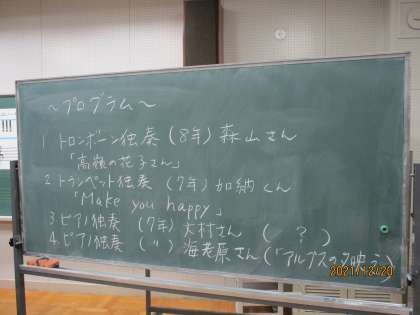 ～プログラム～
1 トロンボーン独奏(8年)森山さん
「高嶺の花子さん」
2.トランペット独奏(7年)加納くん
「Make you happy」
3.ピアノ独奏(7年)大村さん(?)
4.ピアノ独奏(〃)海老原さん(「アルプスの夕映え」)
2021/12/20